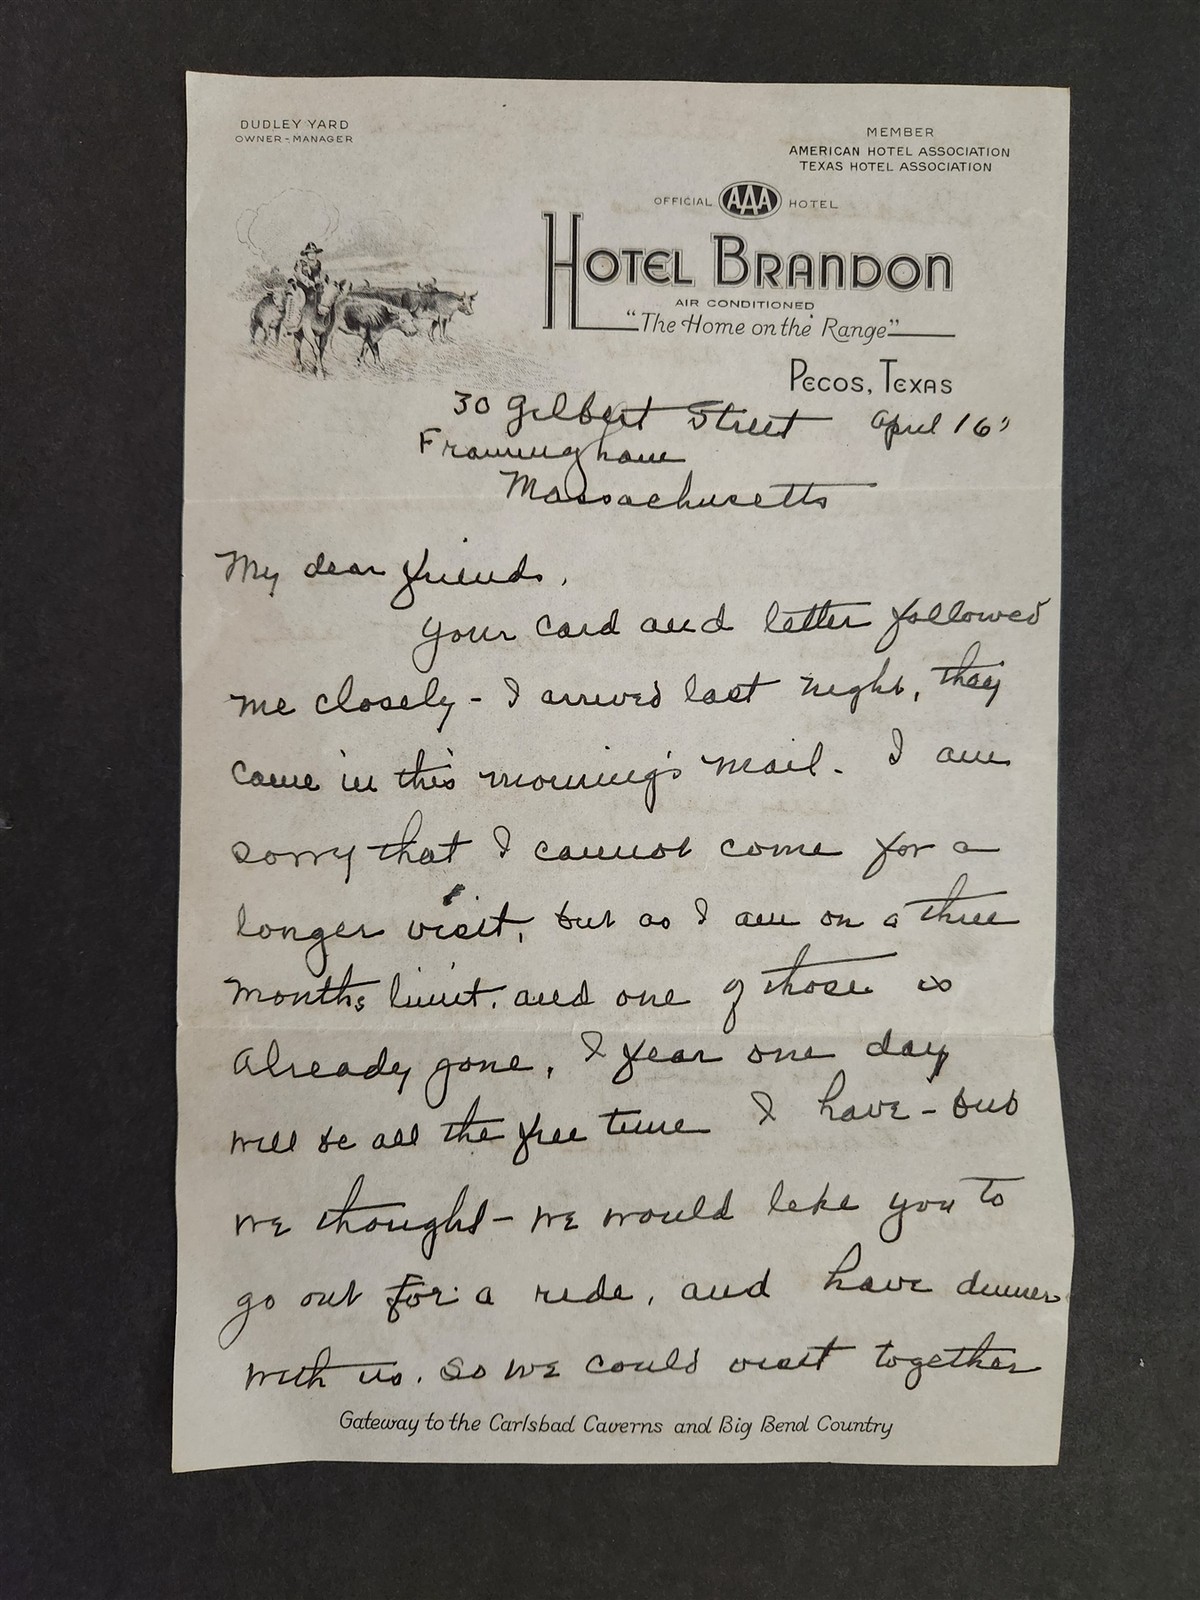 DUDLEY YARD
OWNER-MANAGER
MEMBER
AMERICAN HOTEL ASSOCIATION
TEXAS HOTEL ASSOCIATION
OFFICIAL AAA HOTEL
HOTEL BRANDON
AIR CONDITIONED
"The Home on the Range"
PECOS, TEXAS
30 Gilbert Street April 16'
Framingham
Massachusetts
My dear friends,
Your card and letter followed
me closely - I arrived last night, they
came in this morning's mail. I am
sorry that I cannot come for a
longer visit, but as I am on a three
months limit, and one of those is
already gone, I fear one day
will be all the free time I have - but
we thought - we would like you to
go out for a ride, and have dinner
with us. So we could visit together
Gateway to the Carlsbad Caverns and Big Bend Country